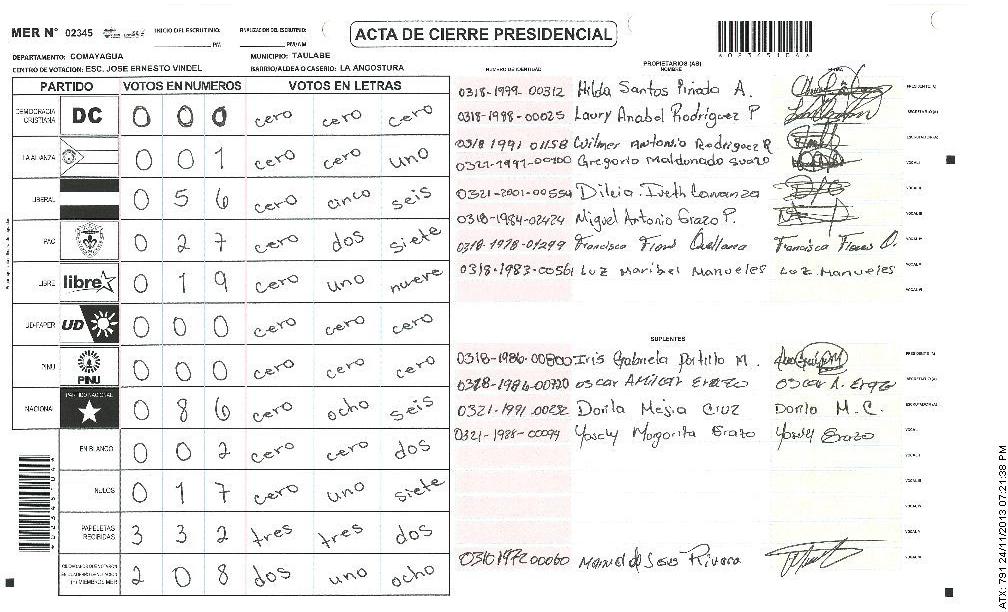 MER N° 02345 INICIO DEL ESCRUTINIO: PM FINALIZACION DEL ESCRUTINIO: PM/AM
ACTA DE CIERRE PRESIDENCIAL
DEPARTAMENTO: COMAYAGUA MUNICIPIO: TAULABE
CENTRO DE VOTACION: ESC. JOSE ERNESTO VINDEL BARRIO/ALDEA O CASERIO: LA ANGOSTURA
PARTIDO VOTOS EN NUMEROS VOTOS EN LETRAS
DEMOCRACIA CRISTIANA DC 0 0 0 cero cero cero
LA ALIANZA 0 0 1 cero cero uno
LIBERAL 0 5 6 cero cinco seis
PAC 0 2 7 cero dos siete
LIBRE libre 0 1 9 cero uno nueve
UD-FAPER UD 0 0 0 cero cero cero
PINU PINU 0 0 0 cero cero cero
NACIONAL PARTIDO NACIONAL 0 8 6 cero ocho seis
EN BLANCO 0 0 2 cero cero dos
NULOS 0 1 7 cero uno siete
PAPELETAS RECIBIDAS 3 3 2 tres tres dos
2 0 8 dos uno ocho
PROPIETARIOS (AS)
NUMERO DE IDENTIDAD NOMBRE
0318-1999-00312 Hilda Santos Pinado A. PRESIDENTE (A)
0318-1988-00025 Laury Anabel Rodriguez P SECRETARIO (A)
0318 1991 01158 Wilmer Antonio Rodriguez R ESCRUTADOR (A)
0321-1997-00100 Gregorio Maldonado Suazo VOCAL I
0321-2001-00554 Iveth Carranza VOCAL II
0318-1984-02424 Miguel Antonio Erazo P. VOCAL III
0318-1978-01299 Francisca Flores Orellana Francisca Flores O. VOCAL IV
0318-1983-00561 Luz Maribel Manueles Luz Manueles VOCAL V
SUPLENTES
0318-1986-00800 Iris Gabriela Portillo M. PRESIDENTE (A)
0318-1986-00720 oscar Amilcar Erazo oscar A. Erazo SECRETARIO (A)
0321-1991-00232 Dorila Mejia Cruz Dorila M.C. ESCRUTADOR (A)
0321-1988-00094 Margarita Erazo Erazo VOCAL I
VOCAL II
VOCAL III
VOCAL IV
VOCAL V
0310197200060 Manuel de Jesus Rivera
ATX: 791 24/11/2013 07:21:38 PM